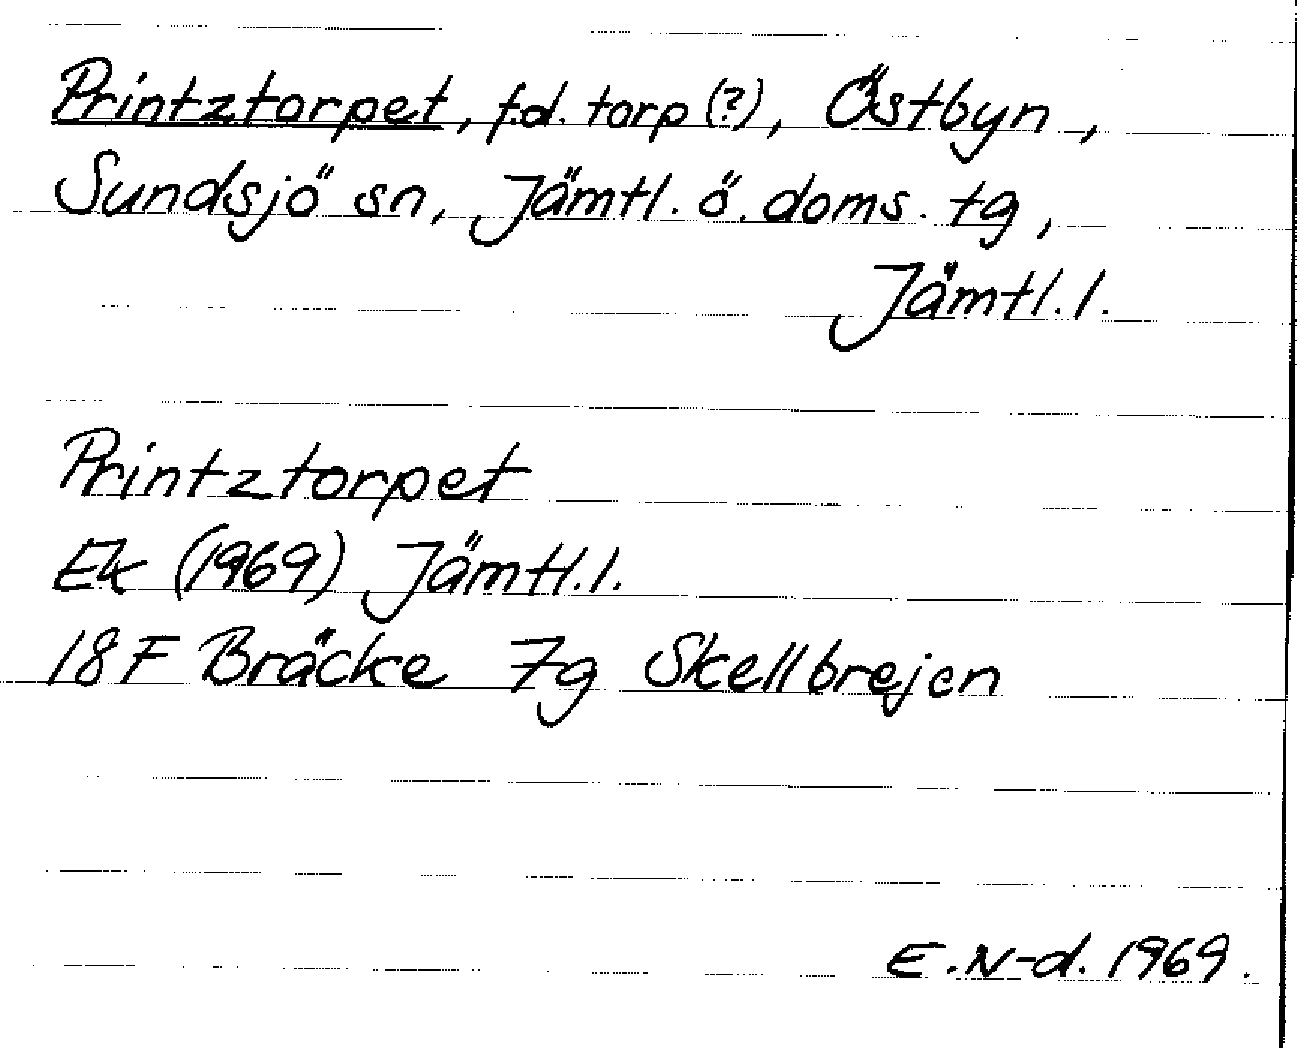 Printztorpet, f.d. torp (?), Östbyn,
Sundsjö sn, Jämtl. ö. doms. tg,
Jämtl. l.
Printztorpet
Ek (1969) Jämtl. l.
18F Bräcke 7g Skellbrejen
E. N-d. 1969.